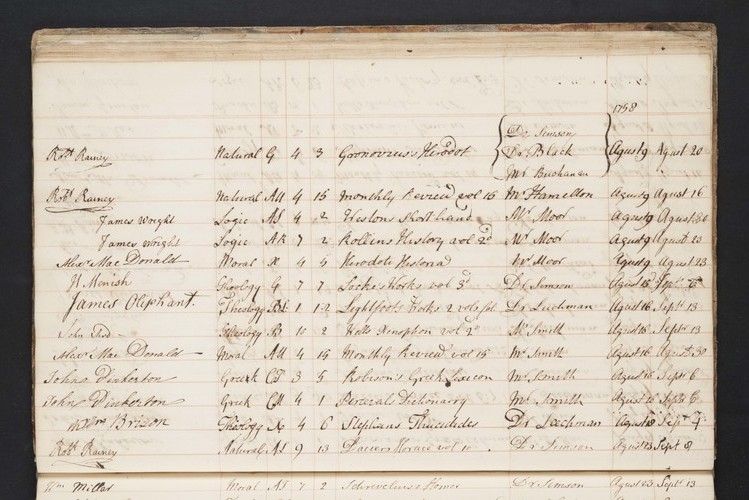 1758
Dr Simson
Robt Rainey Natural G 4 3 Gronovius's Herodot Dr Black Agust 9 Agust 20
Mr Buchanan
Robt Rainey Natural AU 4 15 Monthly Review vol 15 Mr Hamelton Agust 9 Agust 16
James Wright Logic AS 4 2 Westons Short hand Mr Moor Agust 9 Agust 30
James Wright Logic AK 7 2 Rollins History vol 2d Mr Moor Agust 9 Agust 23
Alexr Mac Donald Moral X 4 4 Herodote Historia Mr Moor Agust 9 Agust 23
Theology G 7 7 Locke's Works vol 3d Dr Simson Agust Sept
James Oliphant Theology 1 1-2 Lightfoots Works 2 vols fol Dr Leechman Agust 16 Sept 13
John Theology R 10 2 Wells Xenophon vol 2d Mr Smith Agust 16 Sept 13
Alexr Mac Donald Moral AU 4 15 Monthly Review vol 15 Mr Smith Agust 16 Agust 30
John Pinkerton Greek CF 3 5 Robson's Greek Lexicon Mr Smith Agust 16 Sept 6
John Pinkerton Greek CM 4 1 Dictionarry Mr Smith Agust 16 Sept 6
Brison Theology X 4 6 Stephans Thucidides Dr Leechman Agust 18 Sept 7
Robt Rainey Natural AS 9 13 Daciers Horace vol 10 Dr Simson Agust 23 Sept 8
Wm Millar Moral AS 7 2 Schrevelius's Homer Dr Simson Agust 23 Sept 13